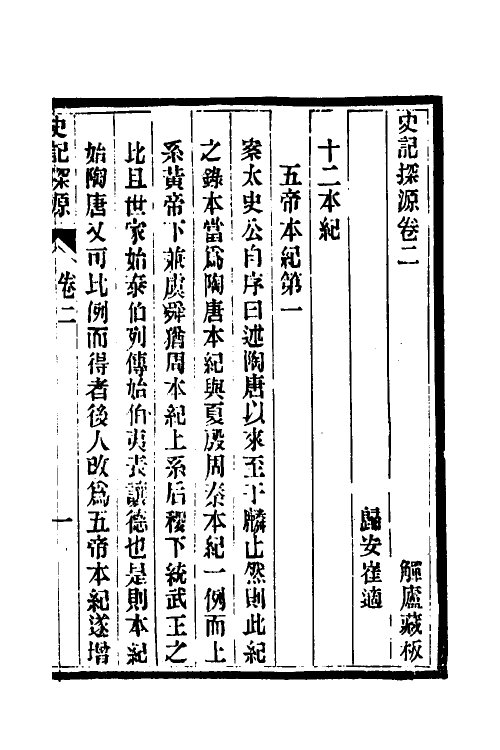 史記探源卷二　觶廬藏板
歸安崔適
十二本紀
五帝本紀第一
案太史公自序曰述陶唐以來至于麟止然則此紀
之錄本當爲陶唐本紀與夏殷周秦本紀一例而上
系黃帝下兼虞舜猶周本紀上系后稷下統武王之
比且世家始泰伯列傳始伯夷表讓德也是則本紀
始陶唐又可比例而得者後人改爲五帝本紀遂增
史記探源　卷二　一